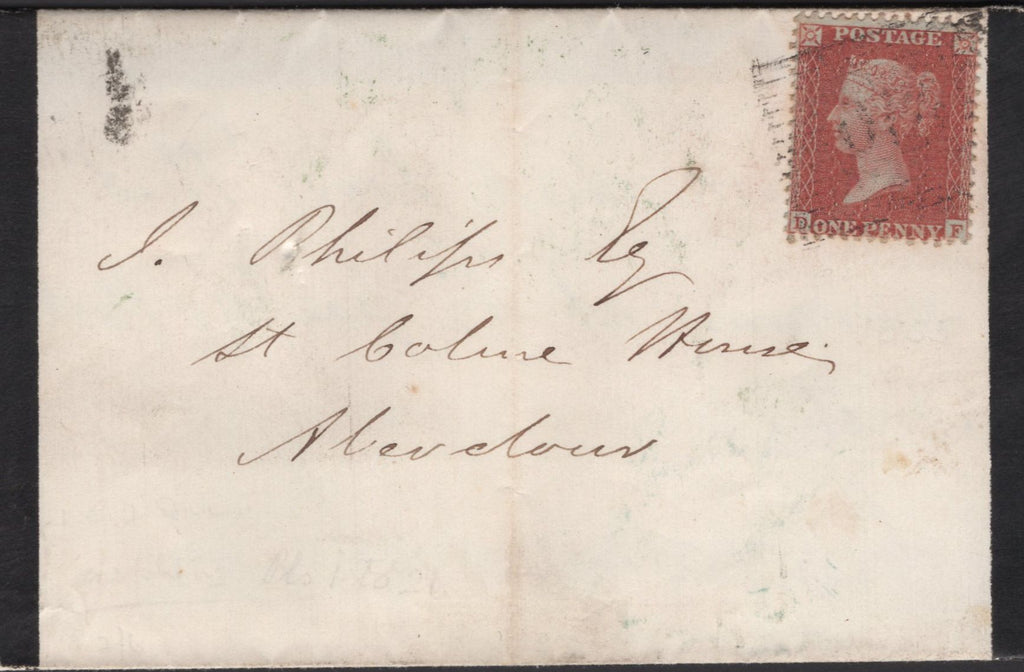 POSTAGE
D ONE PENNY F
J. Philips Esq
St Colme House
Aberdour